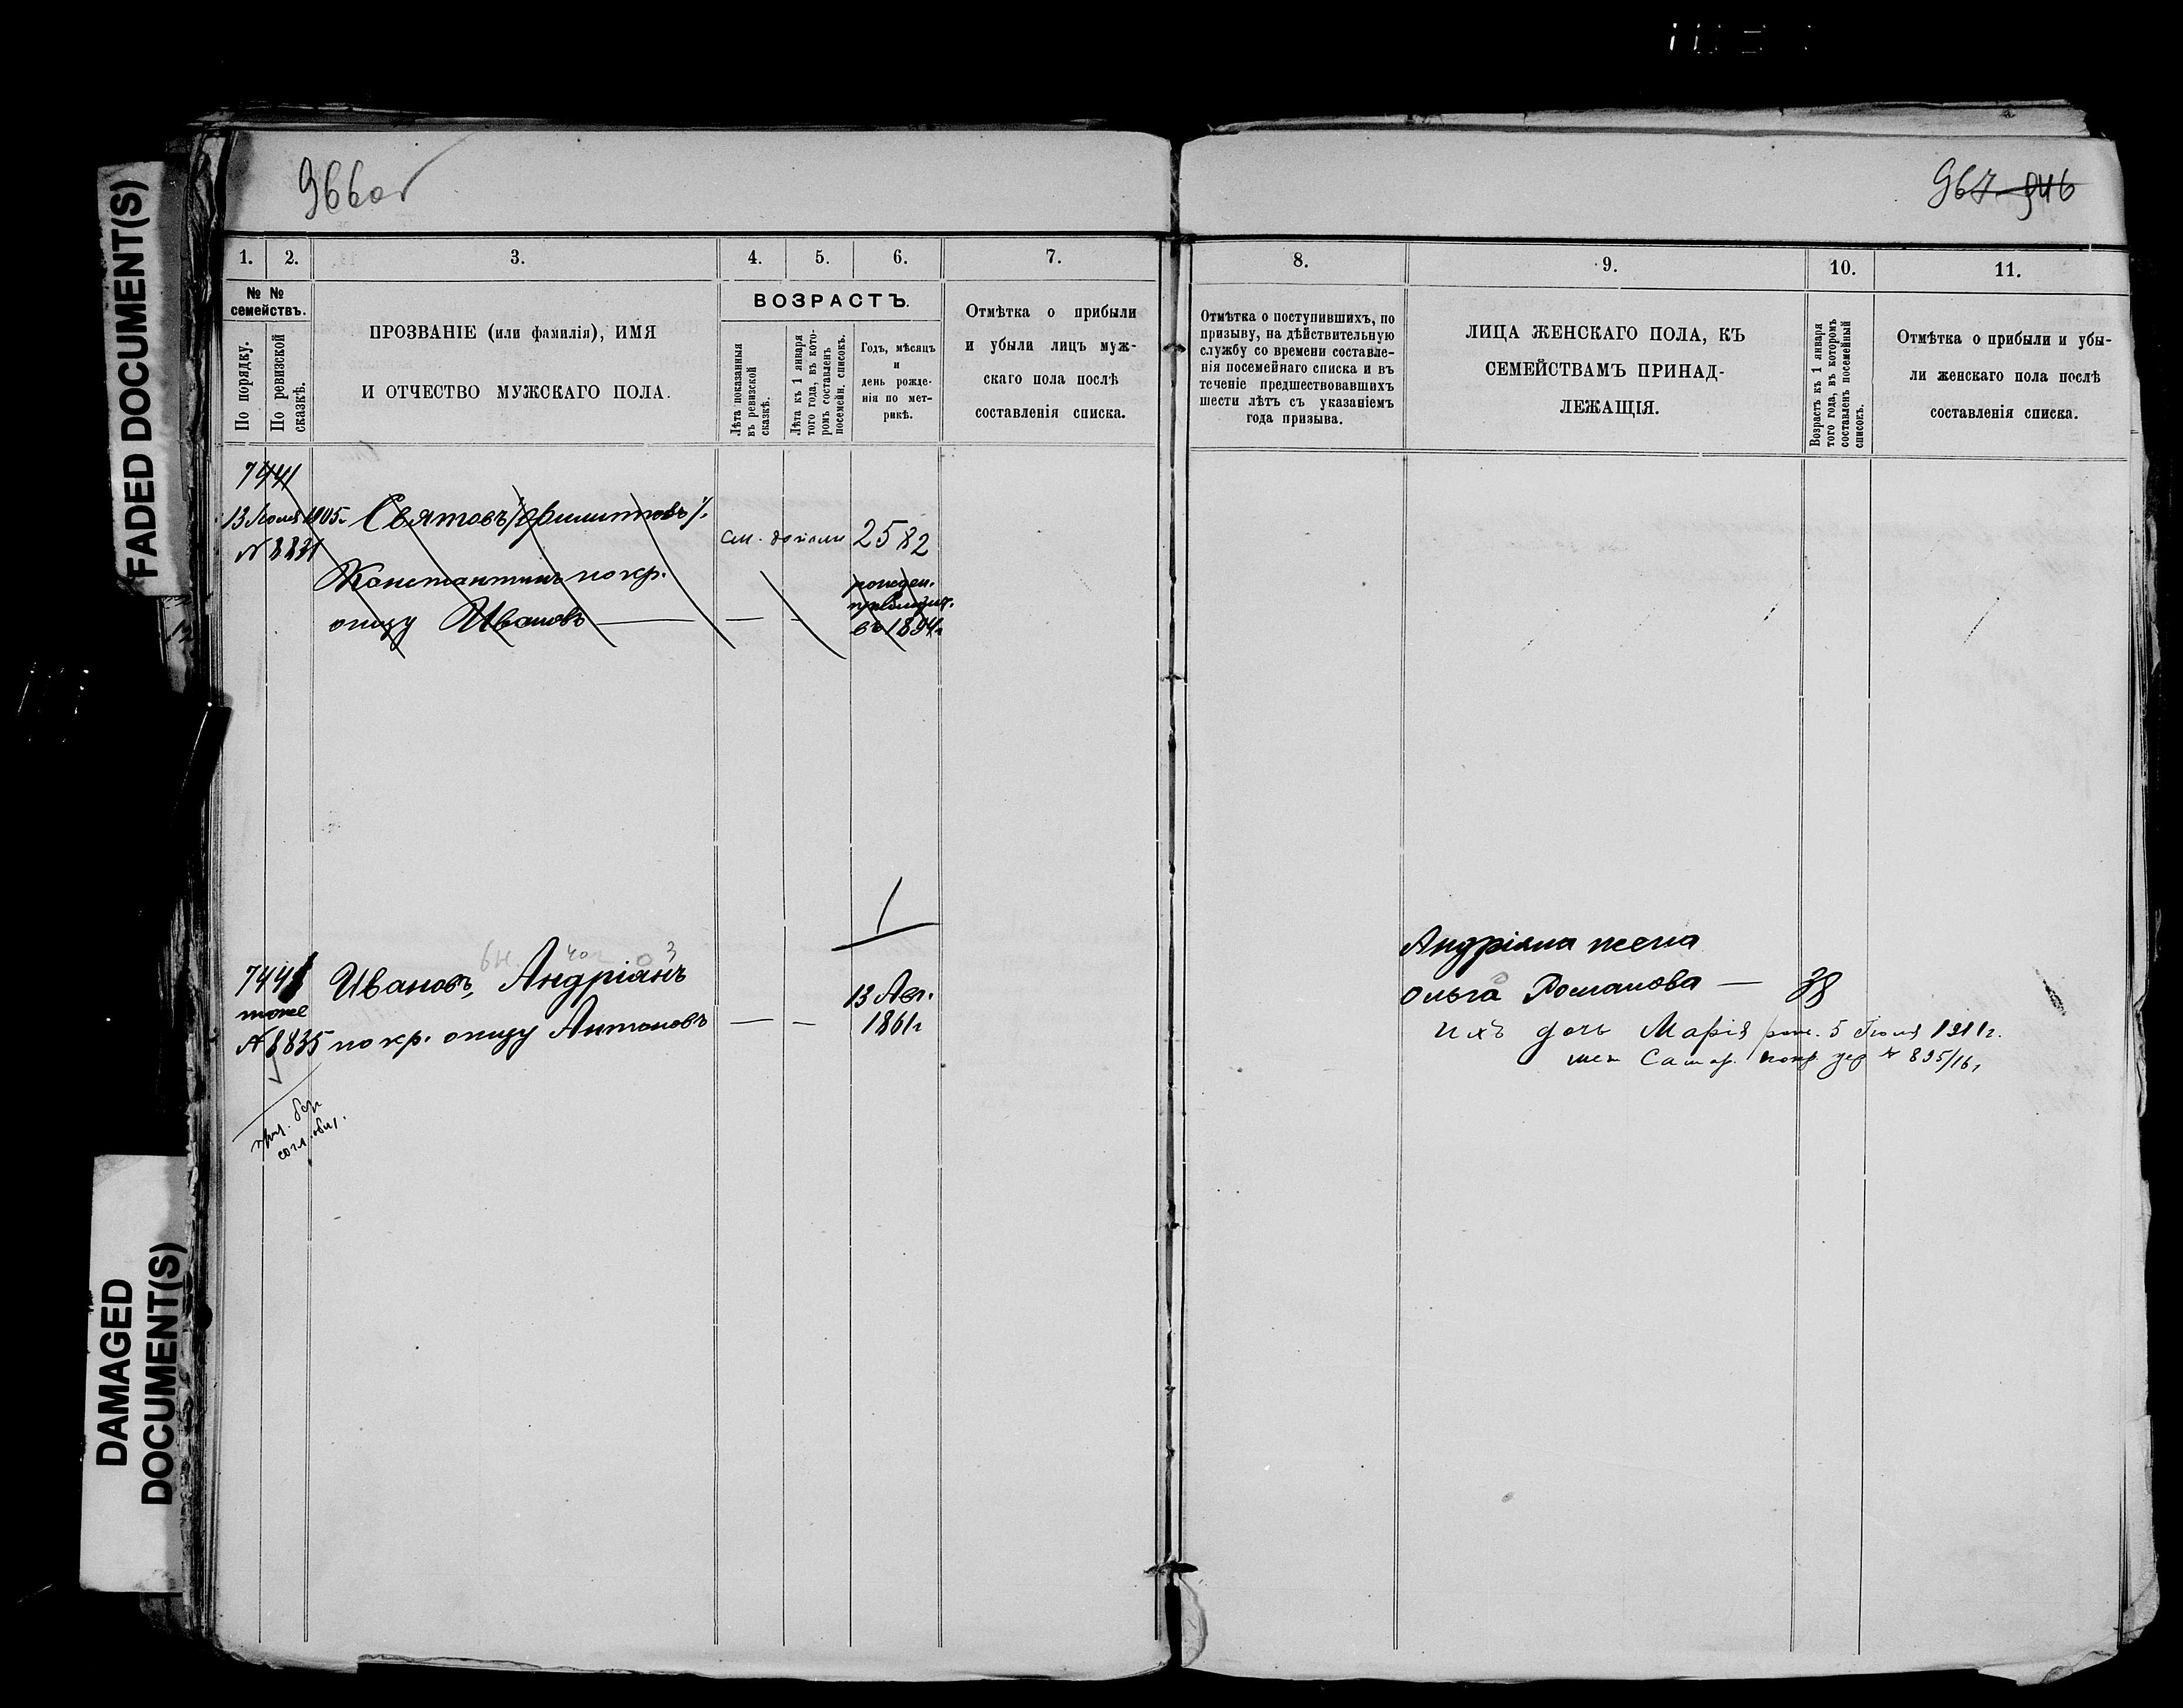 FADED DOCUMENT(S)
DAMAGED
DOCUMENT(S)
966об
1. 2. 3. 4. 5. 6. 7.
№ №
семействъ.
По порядку.
По ревизской
сказкѣ.
ПРОЗВАНІЕ (или фамилія), ИМЯ
И ОТЧЕСТВО МУЖСКАГО ПОЛА.
ВОЗРАСТЪ.
Лѣта показанныя
въ ревизской
сказкѣ.
Лѣта къ 1 января
того года, въ кото-
ромъ составленъ
посемейн. списокъ.
Годъ, мѣсяцъ
и
день рожде-
нія по мет-
рикѣ.
Отмѣтка о прибыли
и убыли лицъ муж-
скаго пола послѣ
составленія списка.
7441
13 Іюля 1905г. Святовъ /Филиповъ/.
№ 8831
см. 2582
Константинъ по кр.
отцу Ивановъ — — -
рожден.
приблизит.
въ 1894г
7441 Ивановъ, Андріянъ
тоже
№ 8835 по кр. отцу Антоновъ — —
13 Авг.
1861г
967 946
8. 9. 10. 11.
Отмѣтка о поступившихъ, по
призыву, на дѣйствительную
службу со времени составле-
нія посемейнаго списка и въ
теченіе предшествовавшихъ
шести лѣтъ съ указаніемъ
года призыва.
ЛИЦА ЖЕНСКАГО ПОЛА, КЪ
СЕМЕЙСТВАМЪ ПРИНАД-
ЛЕЖАЩІЯ.
Возрастъ къ 1 января
того года, въ которомъ
составленъ посемейный
списокъ.
Отмѣтка о прибыли и убы-
ли женскаго пола послѣ
составленія списка.
Андріяна жена
Ольга Романова — 38
ихъ дочь Марія /рож. 5 Іюля 1911г.
895/16,